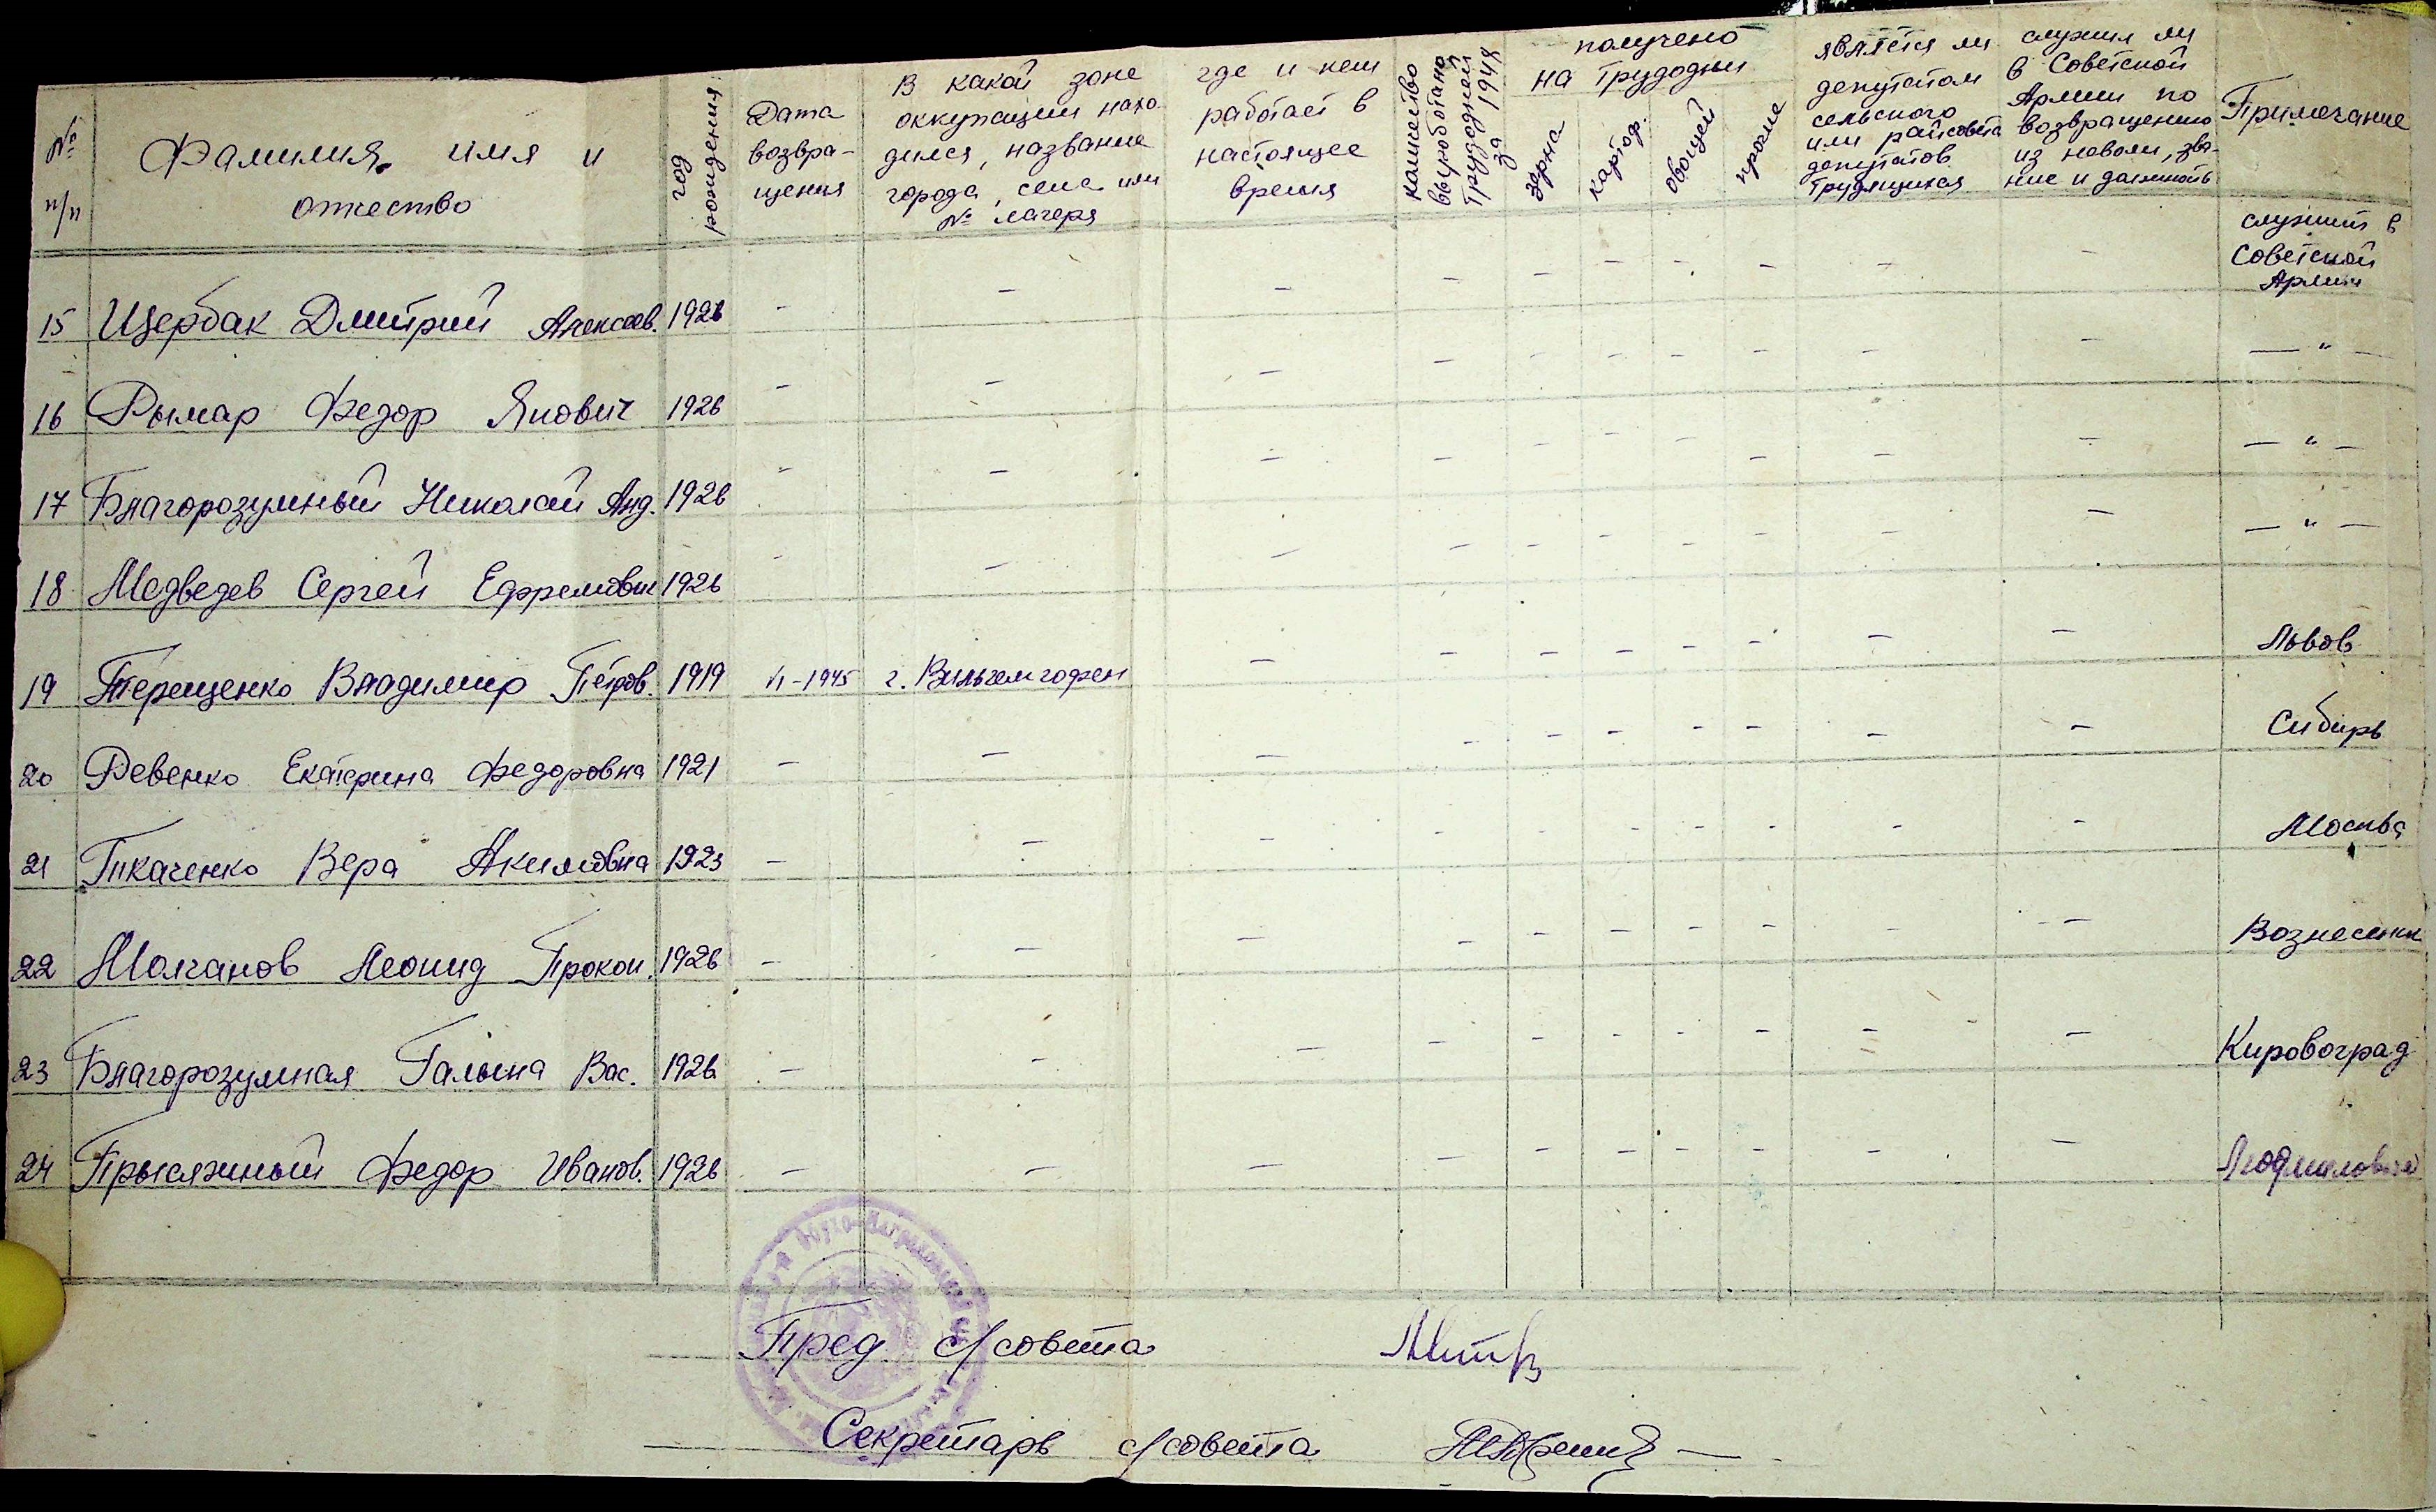 № п/п
Фамилия, имя и отчество
год рождения
Дата возвращения
В какой зоне оккупации находился, название города, села или № лагеря
где и кем работает в настоящее время
количество выработано трудодней за 1948
получено на трудодни
зерна
картоф.
овощей
прочие
является ли депутатом сельского или райсовета депутатов трудящихся
служил ли в Советской Армии по возвращению из неволи, звание и должность
Примечание
15 Щербак Дмитрий Алексеев. 1926 - - - - - - - - - - служит в Советской Армии
16 Рымар Федор Янович 1926 - - - - - - - - - - — " —
17 Благорозумный Николай Анд. 1926 - - - - - - - - - — " —
18 Медведев Сергей Ефремович 1926 - - - - - - - - - - — " —
19 Терещенко Владимир Петров. 1919 VI-1945 г. Вильгемгофен - - - - - - - - Львов
20 Ревенко Екатерина Федоровна 1921 - - - - - - - - - - Сибирь
21 Ткаченко Вера Акимовна 1923 - - - - - - - - - - Москва
22 Молчанов Леонид Прокоп. 1926 - - - - - - - - - - Вознесенск
23 Благорозумная Галина Вас. 1926 - - - - - - - - - - Кировоград
24 Прысяжный Федор Иванов. 1926 - - - - - - - - - -
Пред с/совета
Секретарь с/совета